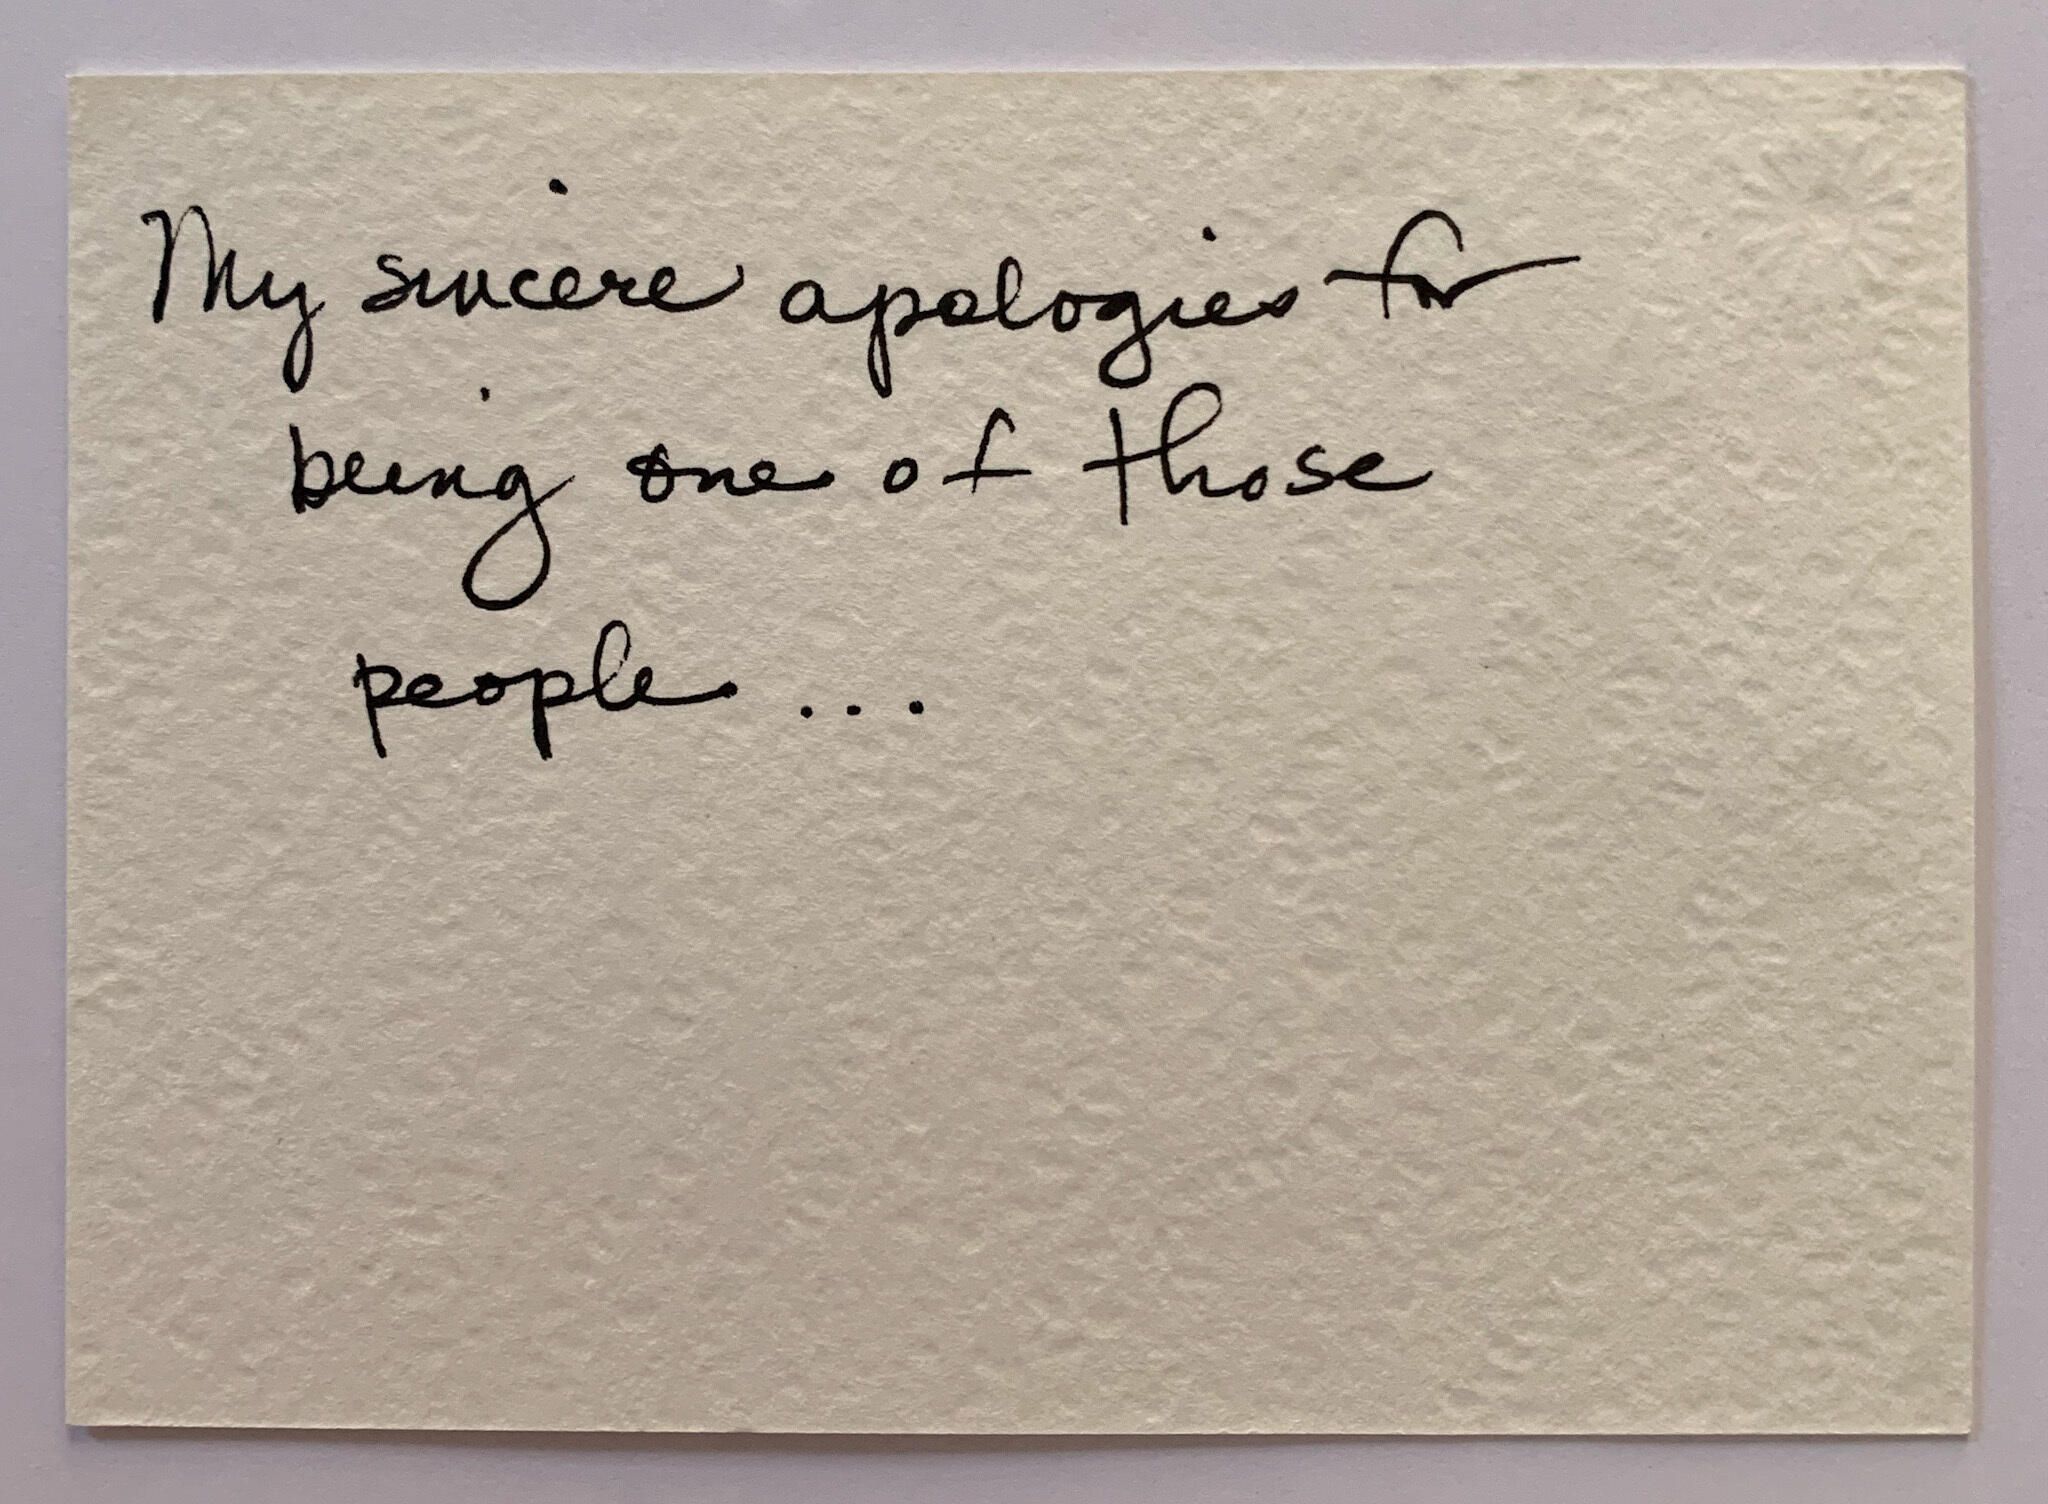 My sincere apologies for
being one of those
people...